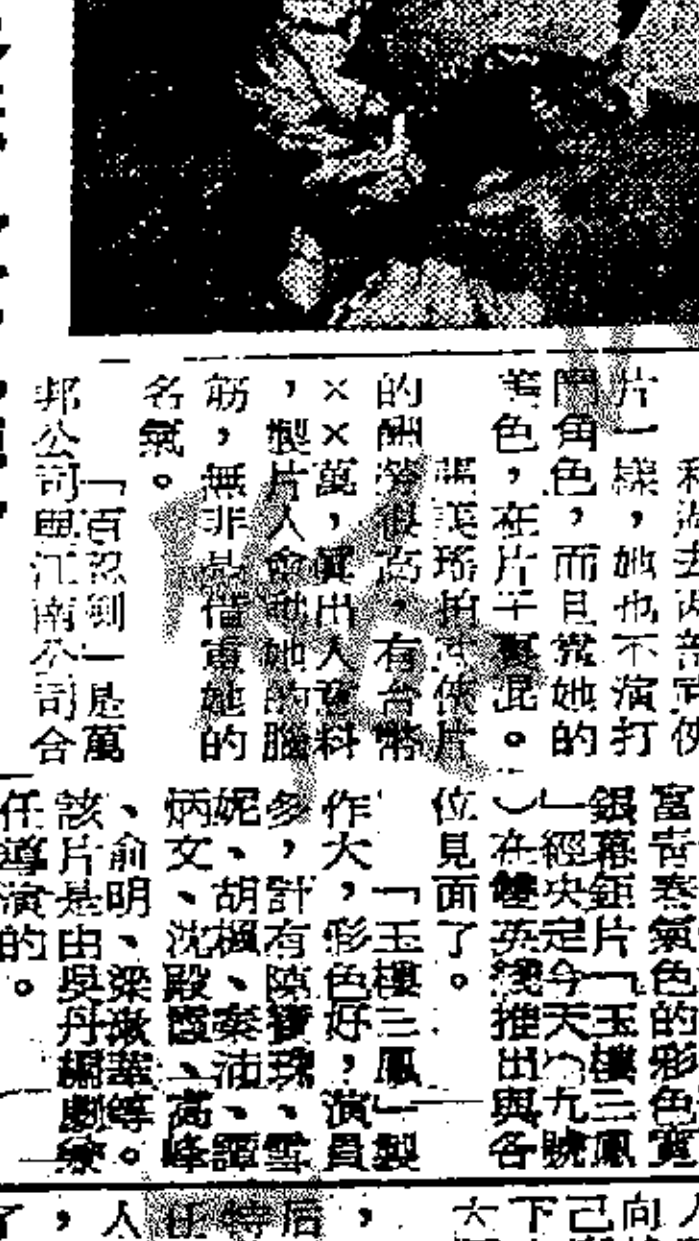 片一樣，她也不演打
鬥角色，而且當她的
美色，在片子裏混。
張美瑤拍武俠片
的酬勞很高，有台幣
××萬，眞出人意料
，製片人會動她的腦
筋，無非是借重她的
名氣。
「百忍到」是萬
邦公司與江南公司合
富青春氣色的彩色寬
銀幕鉅片「玉樓三鳳
」經央定今天（九號
）在雙英綫推出與各
位見面了。
「玉樓三鳳」製
作大，彩色好，演員
多，計有陳寶珠、雪
妮、胡楓、秦沛、譚
炳文、沈殿霞、高峰
、俞明、梁漱華等。
該片是由吳丹編劇兼
任導演的。